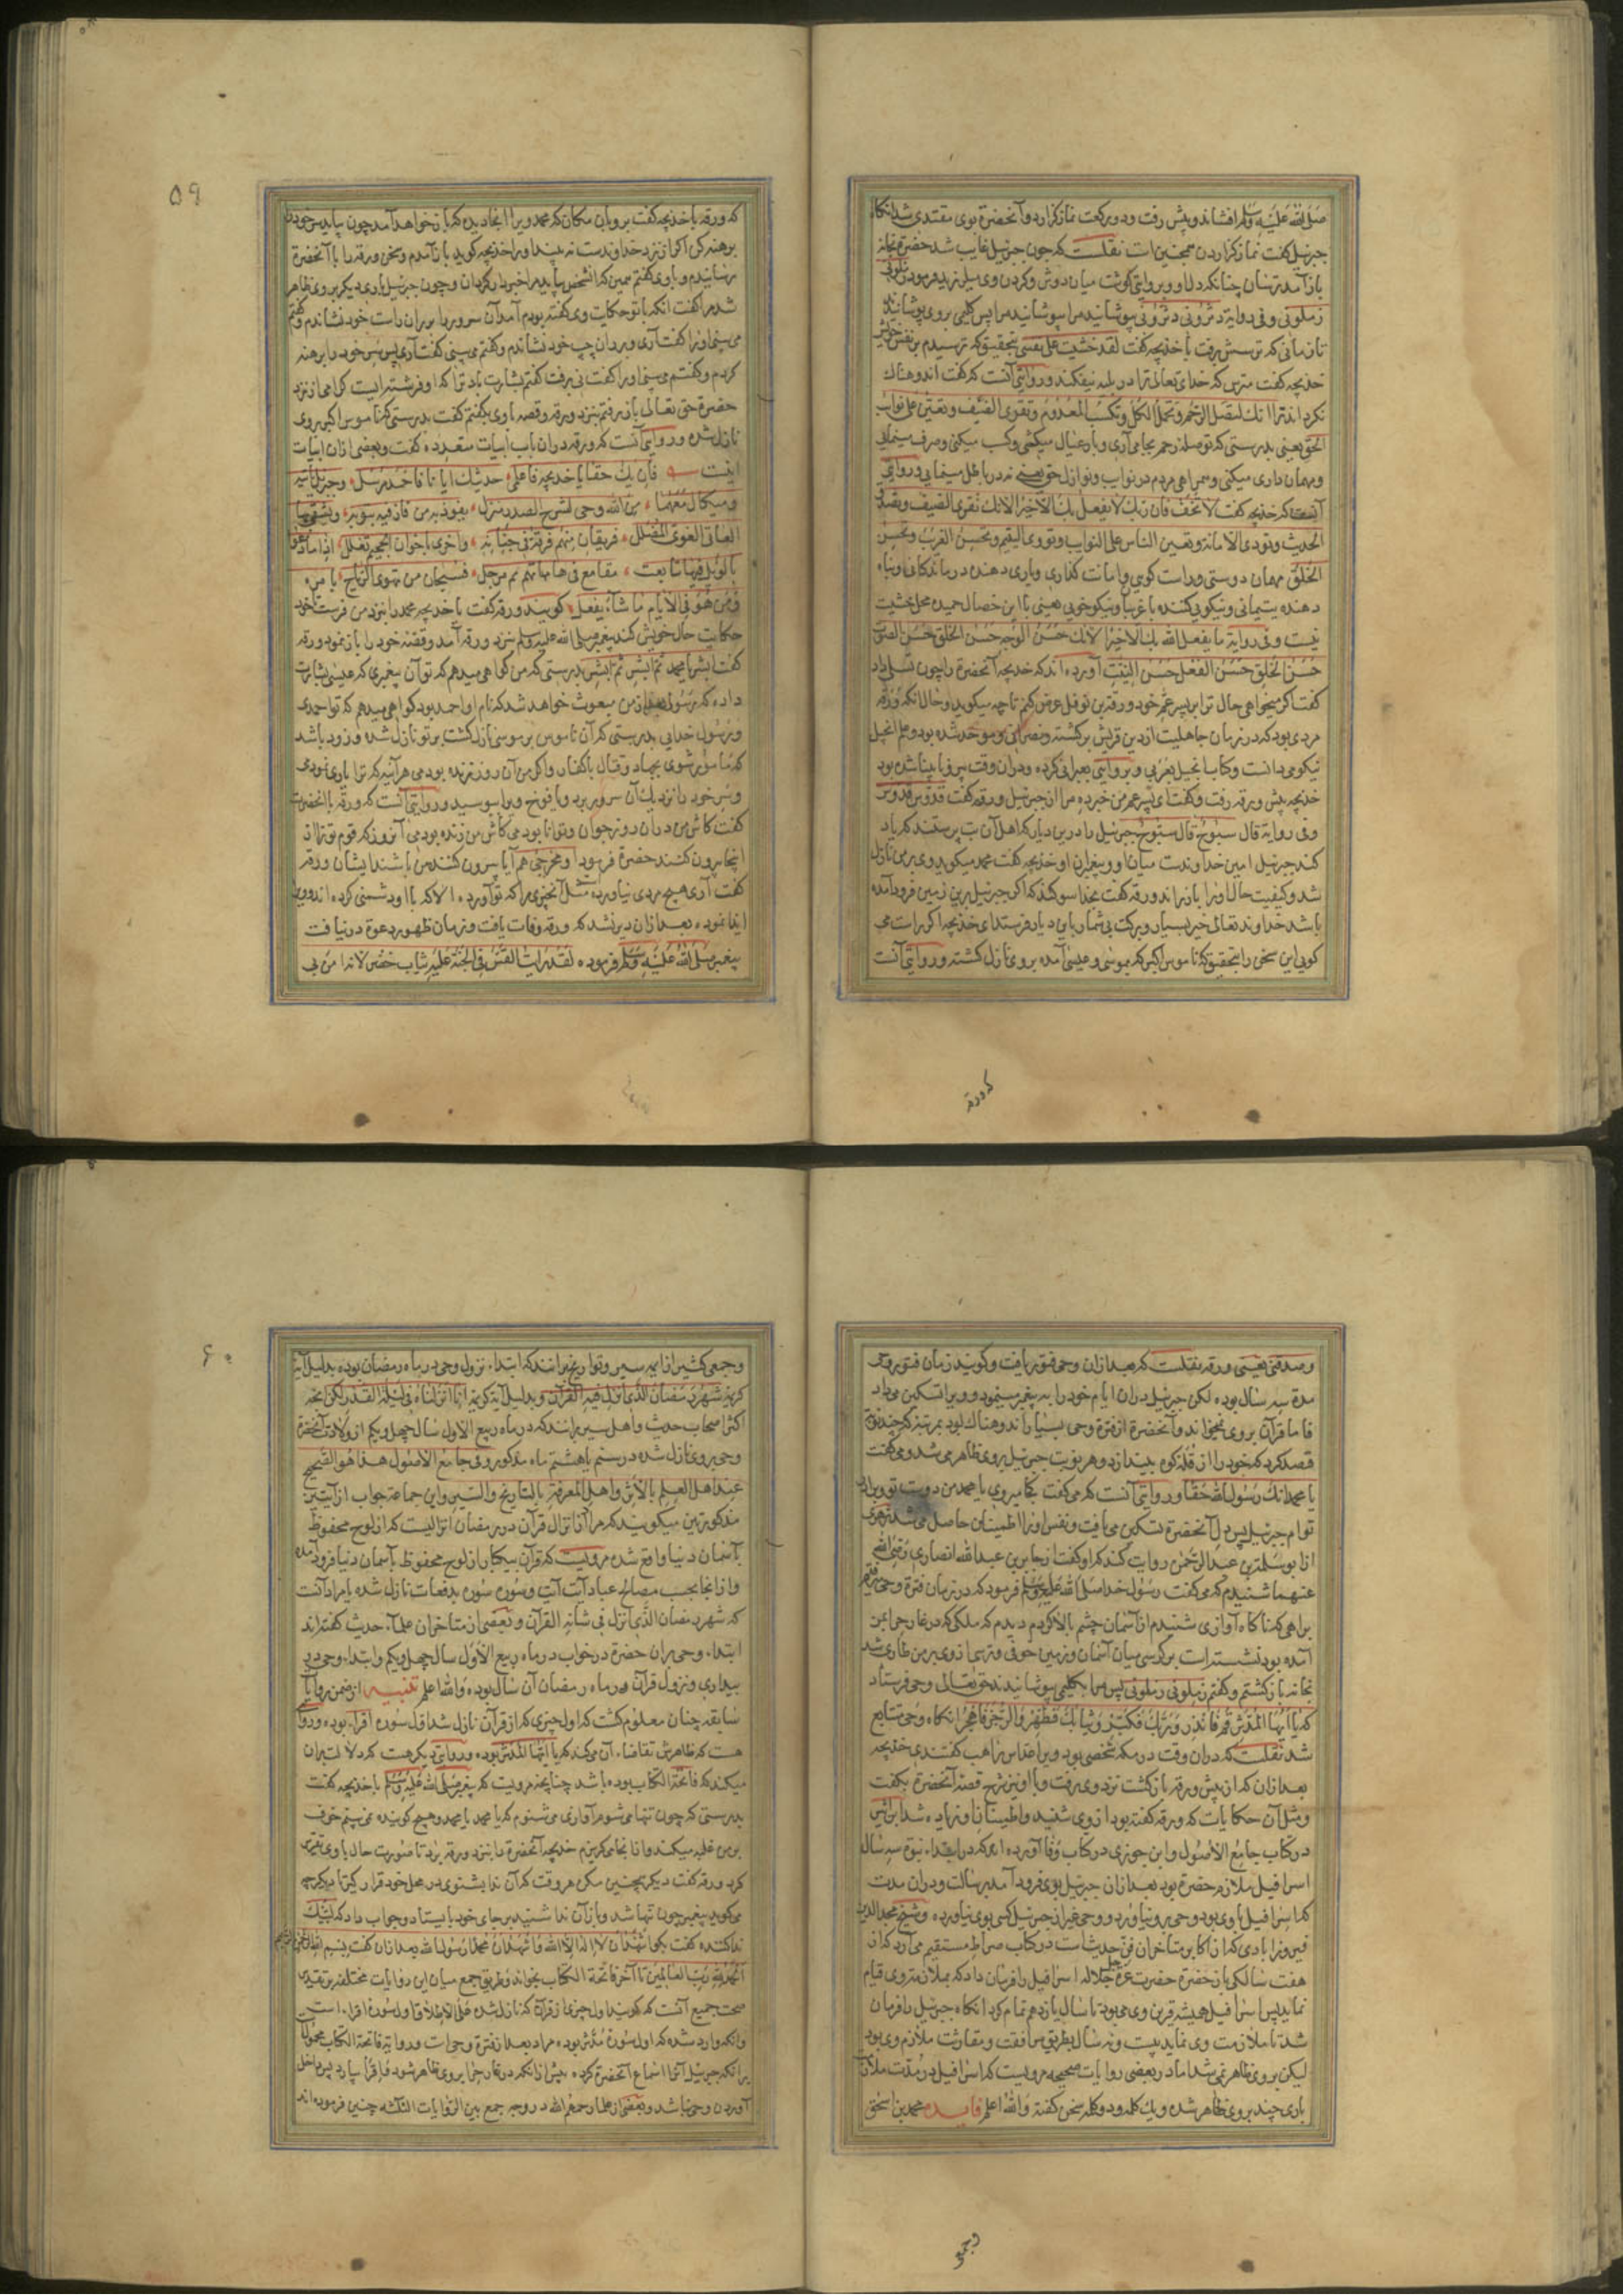 صلی الله علیه وسلم افشاند و پیش رفت و دو رکعت نماز گزارد و آنحضرة بوی مقتدی شد آنکاه
جبرئیل گفت نماز گزاردن همچنین است نقلست که چون جبرئیل غایب شد حضرة بخانه
باز آمد ترسان چنانکه دل او و بروایتی گوشت میان دوش و گردن وی میلرزید و فرمود زملونی
زملونی و فی روایة دثرونی دثرونی بپوشانید مرا بپوشانید مرا پس گلیمی بروی پوشانیدند
تا زمانی که ترسش برفت با خدیجه گفت لقد خشیت علی نفسی بتحقیق که ترسیدم بر نفس خویش
خدیجه گفت مترس که خدای تعالی ترا در بلیه نیفکند و روایتی آنست که گفت اندوهناک
نکرداند ترا انک لتصل الرحم و تحمل الکل و تکسب المعدوم و تقری الضیف و تعین علی نوایب
الحق یعنی بدرستی که تو صله رحم بجا می آری و بار عیال میکشی و کسب میکنی و صرف مینمایی
و مهمان داری میکنی و همراهی مردم در نوایب و نوازل حق یعنی نه در باطل مینمایی و روایتی
آنست که خدیجه گفت لا تخف فان ربک لا یفعل بک الا خیرا لانک تقری الضیف و تصدق
الحدیث و تودی الامانة و تعین الناس علی النوایب و تووی الیتیم و تحسن الغریب و تحسن
الخلق مهمان دوستی و راست گویی و امانت گذاری و یاری دهنده درماندکانی و پناه
دهنده یتیمانی و نیکویی کننده با غریبا و نیکو خویی یعنی با این خصال حمیده محل خشیت
نیست و فی روایة ما یفعل الله بک الا خیرا لانک حسن الوجه حسن الخلق حسن الصوت
حسن الخلق حسن الفعل حسن النیت آورده اند که خدیجه آنحضرة را چون تسلی داد
گفت اکر میخواهی حال ترا بر پسر عم خود ورقة بن نوفل عرض کنم تا چه میکوید و حال انکه ورقه
مردی بود که در زمان جاهلیت از دین قریش برکشته و نصرانی و موحد شده بود و علم انجیل
نیکو می دانست و کتاب انجیل بعربی و بروایتی بعبرانی کرده و دران وقت پیر و نابینا شده بود
خدیجه پیش ورقه رفت و گفت ای پسر عم من خبر ده مرا از جبرئیل ورقه گفت قدوس قدوس
و فی روایة قال سبوح قال سبوح جبرئیل را درین دیار که اهل آن بت پرستند که یاد
کند جبرئیل امین خداوندست میان او و پیغمبران او خدیجه گفت محمد میکوید وی بر من نازل
شد و کیفیت حال او را باز راند ورقه گفت بخدا سوکند که اکر جبرئیل برین زمین فرود آمده
باشد خداوند تعالی خیر بسیار و برکت بی شمار باین دیار فرستد ای خدیجه اکر راست می
کویی این سخن را بتحقیق که ناموس اکبر که بموسی و عیسی آمده بروی نازل کشته و روایتی آنست
که ورقه
۵۹
که ورقه با خدیجه گفت برو بان مکان که محمد ویرا انجا دیده که باز خواهد آمد چون بیاید سر خود
برهنه کن اکر از نزد خداوندست نه بیند او را خدیجه کوید باز آمدم و سخن ورقه را با آنحضرة
رسانیدم و با وی کفتم همین که آن شخص بیاید مرا خبردار کردان و چون جبرئیل باری دیکر بروی ظاهر
شد مرا گفت انکه با تو حکایت وی کفته بودم آمد آن سرور را بر ران راست خود نشاندم و کفتم
می بینی او را گفت آری و بر ران چپ خود نشاندم و کفتم می بینی گفت آری پس سر خود را برهنه
کردم و کفتم می بینی او را گفت نی برفت کفتم بشارت باد ترا که او فرشته ایست کرامی از نزد
حضرة حق تعالی باز رفتم بنزد ورقه و قصه با وی بکفتم گفت بدرستی که ناموس اکبر بروی
نازل شده و روایتی آنست که ورقه دران باب ابیات متعدده گفت و بعضی ازان ابیات
اینست فان یک حقا یا خدیجه فاعلمی حدیثک ایانا فاحمد مرسل وجبریل یاتیه
و میکال معهما من الله وحی یشرح الصدر منزل یفوز به من فاز فیه بتوبه ویشقی بها
العاتی الغوی المضلل فریقان منهم فرقة فی جنانه واخری باخوان الجحیم تغلل اذا ما دعوا
بالویل فیها تتابعت مقامع فی هاماتهم ثم مرجل فسبحان من تهوی الریاح بامره
ومن هو فی الایام ما شاء یفعل کویند ورقه گفت با خدیجه محمد را بنزد من فرست تا خود
حکایت حال خویش کند پیغمبر صلی الله علیه وسلم بنزد ورقه آمد و قصه خود را باز نمود ورقه
گفت ابشر یا محمد ثم ابشر ثم ابشر بدرستی که من کواهی میدهم که تو آن پیغمبری که عیسی بشارت
داده که رسولی بعد از من مبعوث خواهد شد که نام او احمد بود کواهی میدهم که تو احمدی
و رسول خدایی بدرستی که آن ناموس بر موسی نازل کشت بر تو نازل شده و زود باشد
که مامور شوی بجهاد و قتال با کفار و اکر من آن روز زنده بودمی هر آینه که ترا یاری نمودمی
و سر خود را نزدیک آن سرور برد و یافوخ ویرا بوسید و روایتی آنست که ورقه با آنحضرت
گفت کاش من دران روز جوان و توانا بودمی کاش من زنده بودمی آنروز که قوم تو ترا از
اینجا بیرون کنند حضرة فرمود او مخرجی هم آیا بیرون کننده من باشند ایشان ورقه
گفت آری هیچ مردی نیاورده مثل آنچیزی را که تو آورده الا که با او دشمنی کرده اند و ویرا
ایذا نموده بعد ازان دیر نشد که ورقه وفات یافت و زمان ظهور دعوة در نیافت
پیغمبر صلی الله علیه وسلم فرموده لقد رایت القس فی الجنة علیه ثیاب خضر لانه امن بی
وصدقنی یعنی ورقه نقلست که بعد ازان وحی فتور یافت و کویند زمان فتور وحی
مدة سه سال بوده لکن جبرئیل دران ایام خود را به پیغمبر مینمود و ویرا تسکین می داد
فاما قرآن بروی نمیخواند و آنحضرة از فترة وحی بسیار اندوهناک بود بمرتبه که چند نوبت
قصد کرد که خود را از قله کوه بیندازد و هر نوبت جبرئیل بروی ظاهر می شد و می گفت
یا محمد انک رسول الله حقا و روایتی آنست که می گفت کجا میروی یا محمد من دوست تو و برادر
توام جبرئیل پس دل آنحضرة تسکین می یافت و نفس او را اطمینان حاصل می شد زهری
از ابو سلمة بن عبد الرحمن روایت کند که او گفت از جابر بن عبد الله انصاری رضی الله
عنهما شنیدم که می گفت رسول خدا صلی الله علیه وسلم فرمود که در زمان فترة وحی میرفتم
براهی که ناکاه آوازی شنیدم از آسمان چشم بالا کردم دیدم که ملکی که در غار حرا بمن
آمده بود نشسته است بر کرسی میان آسمان و زمین خوفی و ترسی از وی بر من طاری شد
بخانه باز کشتم و کفتم زملونی زملونی پس مرا بکلیمی پوشانیدند حق تعالی وحی فرستاد
که یا ایها المدثر قم فانذر و ربک فکبر و ثیابک فطهر و الرجز فاهجر انکاه وحی متتابع
شد نقلست که دران وقت در مکه شخصی بود ویرا عداس راهب گفتندی خدیجه
بعد ازان که از پیش ورقه باز کشت نزد وی برفت و با او نیز شرح قصه آنحضرة بکفت
و مثل آن حکایات که ورقه گفته بود از وی شنید و اطمینان او زیاده شد ابن اثیر
در کتاب جامع الاصول و ابن جوزی در کتاب وفا آورده اند که در ابتداء نبوة سه سال
اسرافیل ملازم حضرة بود بعد ازان جبرئیل بوی فرود آمد برسالت و دران مدت
که اسرافیل با وی بود وحی برو نیاورد و وحی غیر از جبرئیل کسی بوی نیاورده و شیخ مجد الدین
فیروزابادی که از اکابر متاخران فن حدیث است در کتاب صراط مستقیم می آرد که از
هفت سالکی باز حضرة حضرت عزة جل جلاله اسرافیل را فرمان داد که بملازمت وی قیام
نماید پس اسرافیل همیشه قرین وی می بود تا سال یازدهم تمام کرد انکاه جبرئیل را فرمان
شد تا ملازمت وی نماید بیست و نه سال بطریق مرافقت و مقارنت ملازم وی بود
لیکن بروی ظاهر نمی شد اما در بعضی روایات صحیحه مرویست که اسرافیل در مدت ملازمت
باری چند بروی ظاهر شده و یک کلمه و دو کلمه سخن گفته و الله اعلم فایده محمد بن اسحق
وجمعی
۶۰
وجمعی کثیر از ایمه سیر و تواریخ برانند که ابتداء نزول وحی در ماه رمضان بوده بدلیل آیة
کریمه شهر رمضان الذی انزل فیه القرآن و بدلیل آیة کریمه انا انزلناه فی لیلة القدر لکن آنچه
اکثر اصحاب حدیث و اهل سیر برانند که در ماه ربیع الاول سال چهل و یکم از ولادت آنحضرة
وحی بروی نازل شده در سیم یا هشتم ماه مذکور و فی جامع الاصول هذا هو الصحیح
عند اهل العلم بالاثر و اهل المعرفة بالتاریخ و السیر و این جماعة جواب از آیتین
مذکورتین میکویند که مراد انزال قرآن در رمضان انزالیست که از لوح محفوظ
بآسمان دنیا واقع شده مرویست که قرآن بیکبار از لوح محفوظ بآسمان دنیا فرود آمده
و از انجا بحسب مصالح عباد آیت آیت و سوره سوره بدفعات نازل شده یا مراد آنست
که شهر رمضان الذی انزل فی شانه القرآن و بعضی از متاخران علماء حدیث کفته اند
ابتداء وحی بران حضرة در خواب در ماه ربیع الاول سال چهل و یکم و ابتداء وحی در
بیداری و نزول قرآن در ماه رمضان آن سال بوده والله اعلم تنبیه از ضمن روایات
سابقه چنان معلوم کشت که اول چیزی که از قرآن نازل شد اول سوره اقرا بوده و روایتی
هست که ظاهرش تقاضاء آن می کند که یا ایها المدثر بوده و روایتی دیکر هست که دلالت بران
میکند که فاتحة الکتاب بوده باشد چنانچه مرویست که پیغمبر صلی الله علیه وسلم با خدیجه گفت
بدرستی که چون تنها می شوم آوازی می شنوم که یا محمد یا محمد و هیچ کوینده نمی بینم خوف
بر من غلبه میکند و از انجا می کریزم خدیجه آنحضرة را بنزد ورقه برد تا صورت حال با وی تقریر
کرد ورقه گفت دیکر چنین مکن هر وقت که آن ندا بشنوی در محل خود قرار گیر تا دیکر چه
می کوید پیغمبر چون تنها شد و باز آن ندا شنید بر جای خود بایستاد و جواب داد که لبیک
ندا کننده گفت بکو اشهد ان لا اله الا الله و اشهد ان محمدا رسول الله بعد ازان گفت بسم الله الرحمن الرحیم
الحمد لله رب العالمین تا آخر فاتحة الکتاب بخواند و طریق جمع میان این روایات مختلفه بر تقدیر
صحت جمیع آنست که کویند اول چیزی از قرآن که نازل شده علی الاطلاق اول سورة اقرا است
و انکه وارد شده که اول سورة مدثر بوده مراد بعد از فترة وحی است و روایة فاتحة الکتاب محمول
برانکه جبرئیل آنرا اسماع آنحضرة کرده پیش از انکه در غار حرا بروی ظاهر شود و اقرا بیارد پس داخل
آوردن وحی نباشد و بعضی از علما رحمهم الله در وجه جمع بین الروایات الثلثه چنین فرموده اند